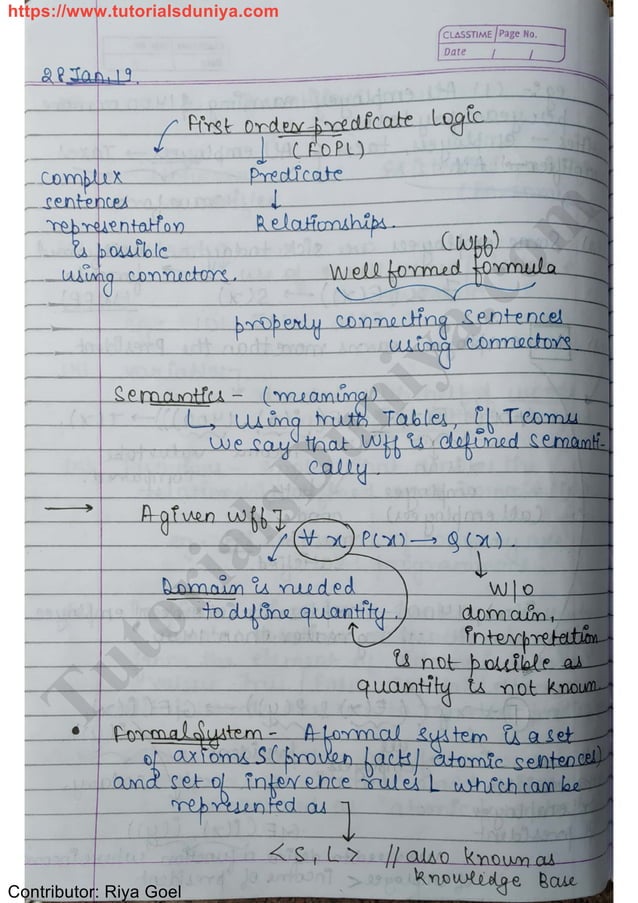 https://www.tutorialsduniya.com
CLASSTIME Page No.
Date / /
28 Jan, 19.
First order predicate Logic
(FOPL)
complex
sentences
representation
is possible
using connectors.
Predicate
Relationships.
(Wff)
Well formed formula
properly connecting sentences
using connectors.
Semantics - (meaning)
↳ using truth Tables, if T comes
we say that Wff is defined semanti-
cally.
→ A given Wff ]
∀ x P(x) → Q(x).
Domain is needed
to define quantity.
W/O
domain,
interpretation
is not possible as
quantity is not known.
• Formal System - A formal system is a set
of axioms S (proven facts/ atomic sentences)
and set of inference rules L which can be
represented as
<S, L> // also known as
knowledge Base
TutorialsDuniya.com
Contributor: Riya Goel